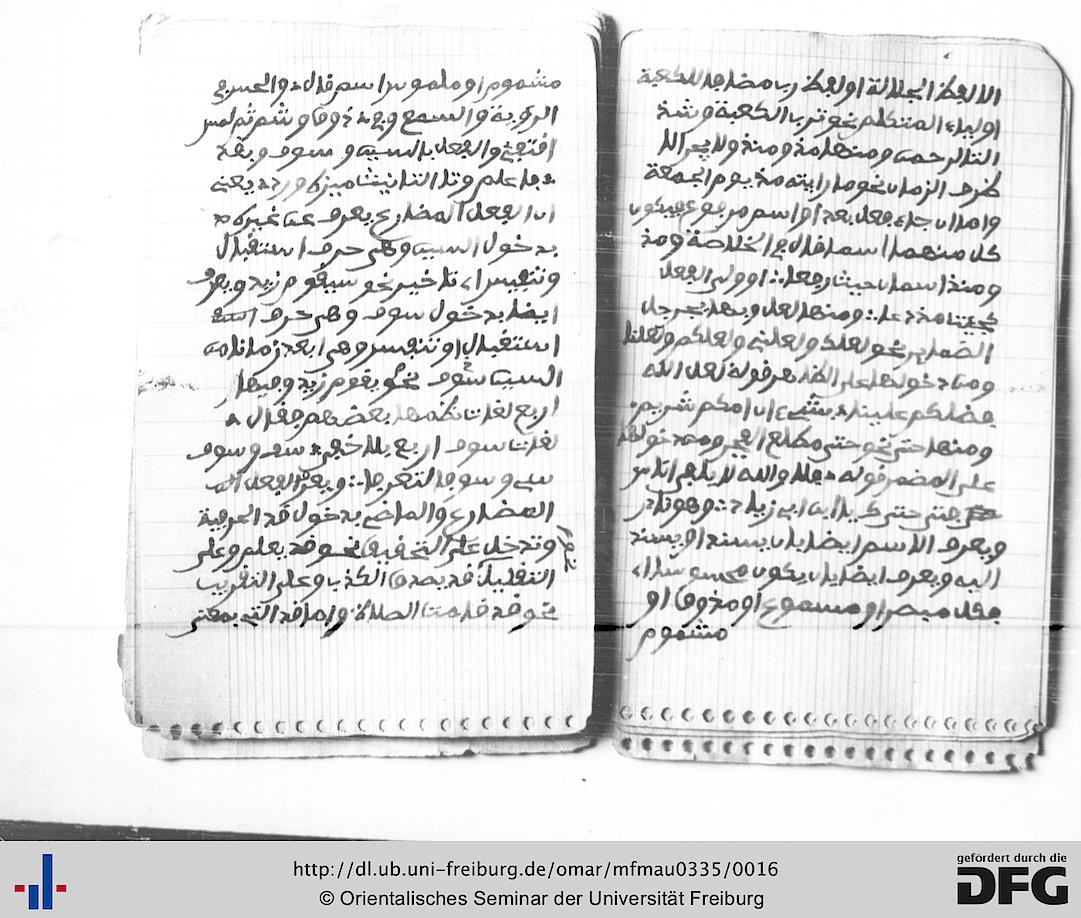 الا لفظ الجلالة او لفظ رب مضافا للكعبة
او لياء المتكلم نحو ترب الكعبة وشذ
تالرحمن ومنها مذ ومنذ ولا يجر الا
ظرف الزمان نحو ما رايته مذ يوم الجمعة
واما ان جاء فعل بعد او اسم مرفوع فيكون
كل منهما اسما قال في الخلاصة ومذ
ومنذ اسمان حيث رفعا ∴ او ولي الفعل
كجئت مذ دعا ∴ ومنها لعل وبها يجر جل
الضماير نحو لعلك ولعلني ولعلكم ولعلنا
ومن دخولها على الظاهر قوله لعل الله
فضلكم علينا * بشيء ان امكم شريم
ومنها حتى نحو حتى مطلع الفجر ومن دخولها
على المضمر قوله * فلا والله لا يلفى اناس
فتى حتاك يا ابن ابي زياد ∴ وهو نادر
ويعرف الاسم ايضا بان يسند او يسند
اليه ويعرف ايضا بان يكون محسوسا اي
فكل مبصر او مسموع او مذوق او
مشموم
مشموم او ملموس اسم قال * والحس في
الرؤية والسمع وفي * ذوق وشم ثم لمس
اقتفي والفعل بالسين وسوف وبقد
* فاعلم وتا التانيث ميزه ورد * يعني
ان الفعل المضارع يعرف عن غيره *
بدخول السين وهي حرف استقبال
وتنفيس اي تاخير نحو سيقوم زيد ويعرف
ايضا بدخول سوف وهي حرف
استقبال او تنفيس وهي ابعد زمانا من
السين نحو سوف يقوم زيد وفيها
اربع لغات نظمها بعضهم فقال *
لغات سوف اربع بلا خفي * سف وسوف
سي وسو فالتعرف ∴ ويعرف الفعل
المضارع والماضي بدخول قد الحرفية
وتدخل على التحقيق نحو قد يعلم وعلى
التقليل قد يصدق الكذب وعلى التقريب
نحو قد قامت الصلاة واما قد التي بمعنى
http://dl.ub.uni-freiburg.de/omar/mfmau0335/0016
© Orientalisches Seminar der Universität Freiburg
gefördert durch die
DFG